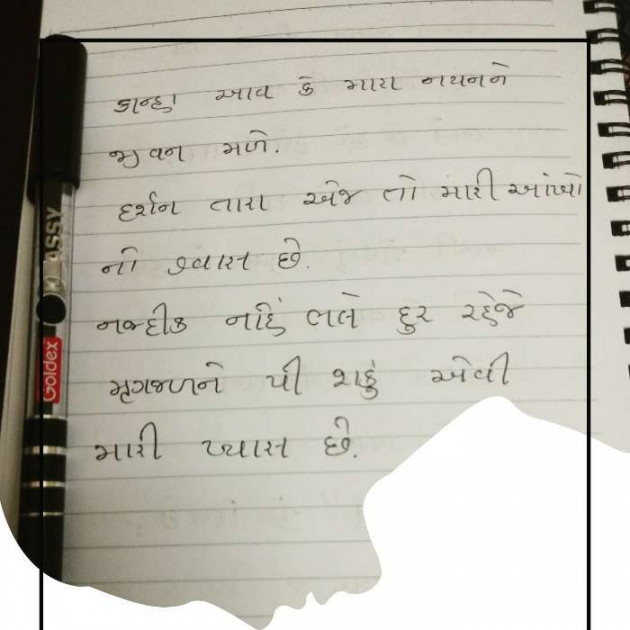 કાન્હા આવ કે મારા નયનને
જીવન મળે.
દર્શન તારા એજ તો મારી આંખો
નો શ્વાસ છે.
નજ્દીક નહિં ભલે દુર રહેજે
મૃગજળને પી શકું એવી
મારી પ્યાસ છે.
KLASSY
Goldex